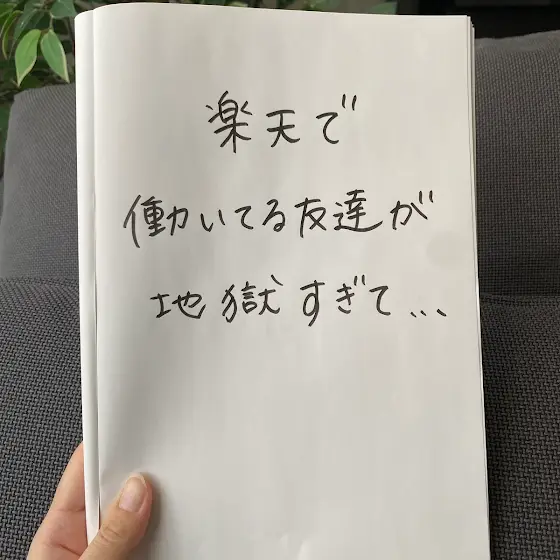 楽天で
働いてる友達が
地獄すぎて...